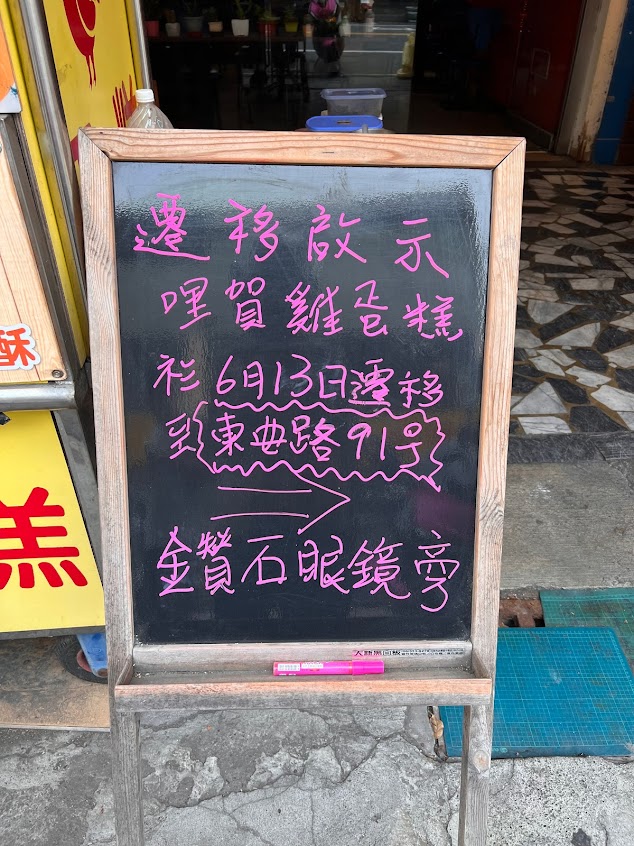 遷移啟示
哩賀雞蛋糕
衫6月13日遷移
到東興路91号
鑽石眼鏡旁
糕
酥